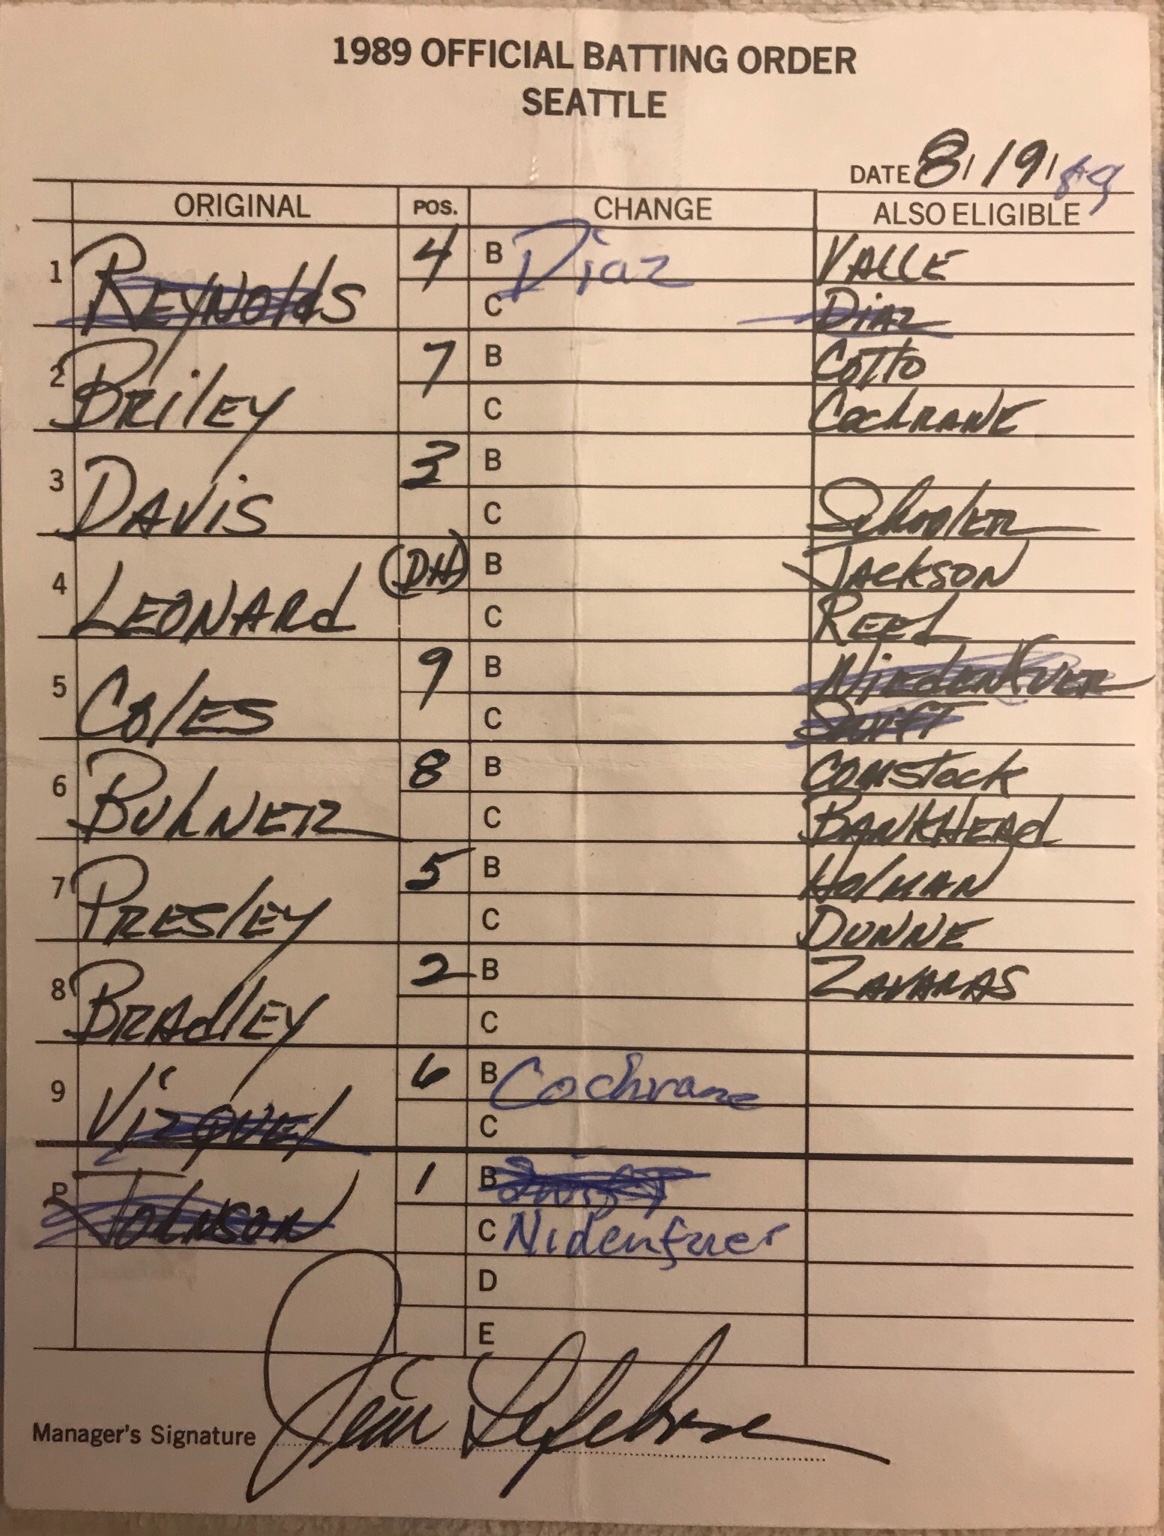 1989 OFFICIAL BATTING ORDER
SEATTLE
DATE 8/19/89
ORIGINAL POS. CHANGE ALSO ELIGIBLE
1 REYNOldS 4 B Diaz VALLE
C DiAZ
2 BRilEY 7 B COTTO
C COCHRANE
3 DAViS 3 B
C SchoolER
4 LEONARd (DH) B JACKSON
C REEd
5 COlES 9 B NiEdENFUER
C SWIFT
6 BUhNER 8 B COMStock
C BANKHEAd
7 PRESlEY 5 B HOlMAN
C DUNNE
8 BRAdlEY 2 B ZAVARAS
C
9 VizQUEl 6 B Cochrane
C
P JOhNSON 1 B Swift
C Nidenfuer
D
E
Manager's Signature Jim Lefebvre